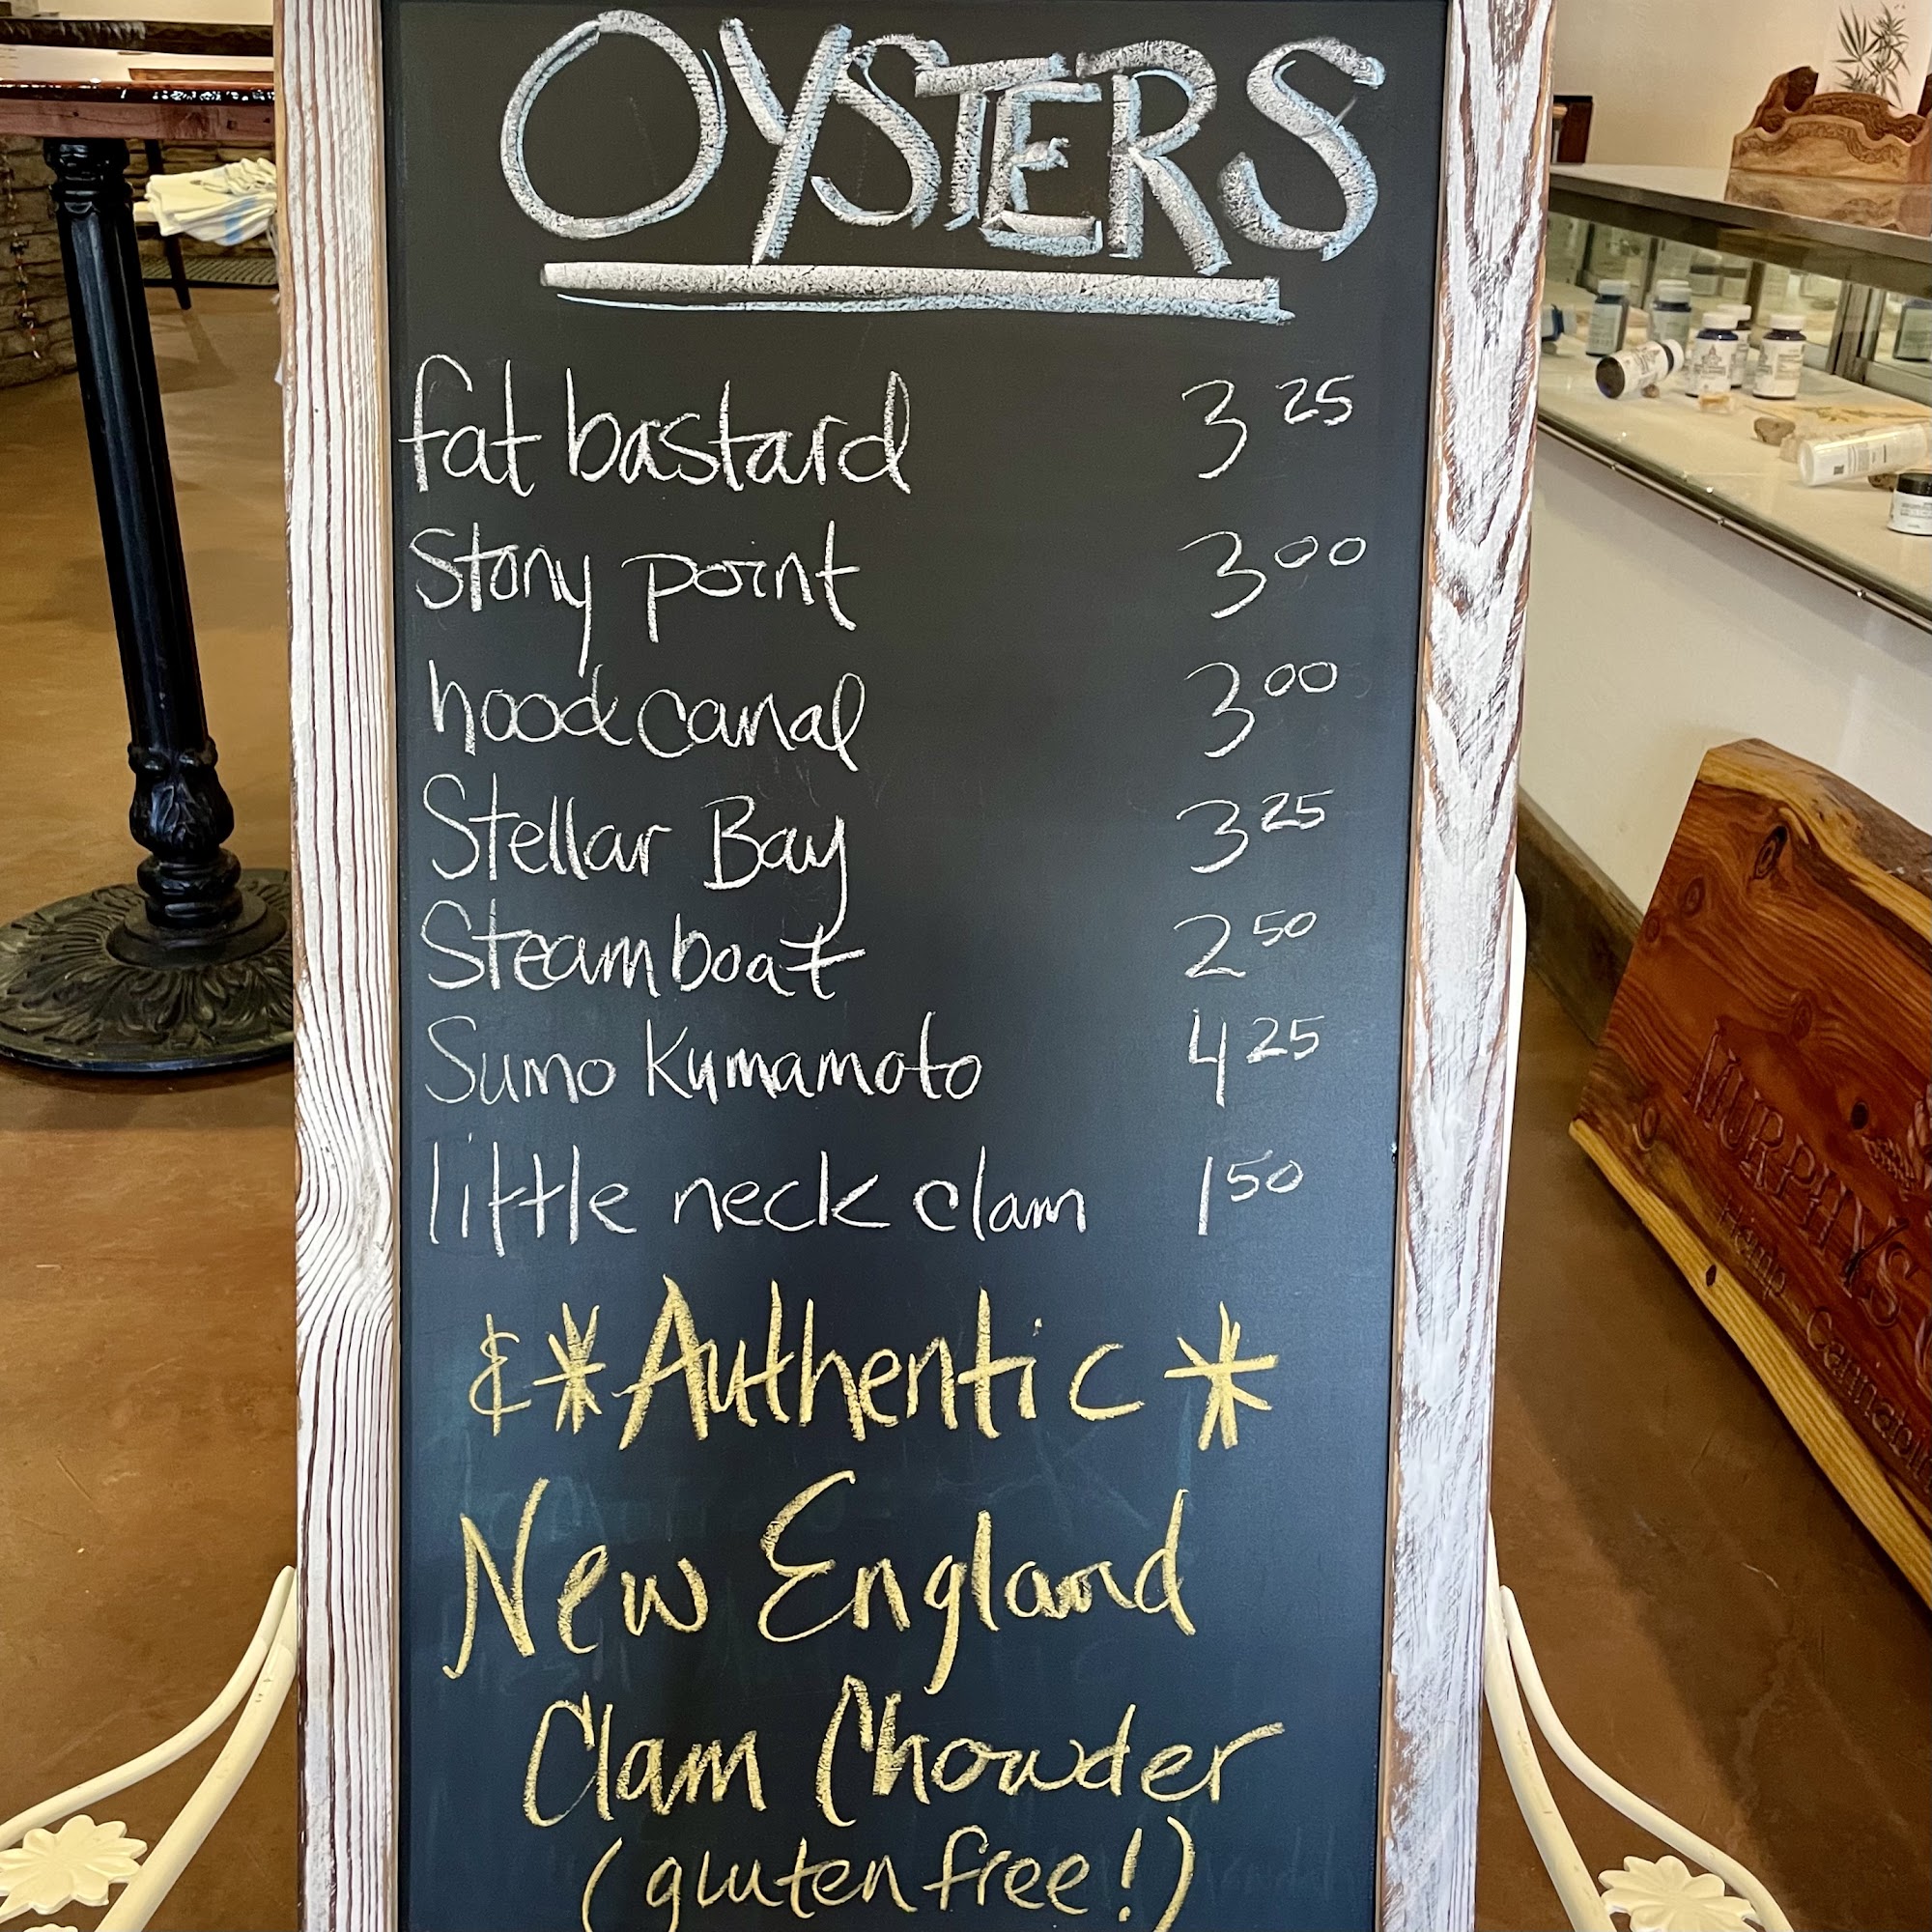 OYSTERS
fat bastard 3 25
Stony point 3 00
hood canal 3 00
Stellar Bay 3 25
Steamboat 2 50
Sumo Kumamoto 4 25
little neck clam 1 50
& *Authentic*
New England
Clam Chowder
(gluten free!)
MURPHYS
Hemp